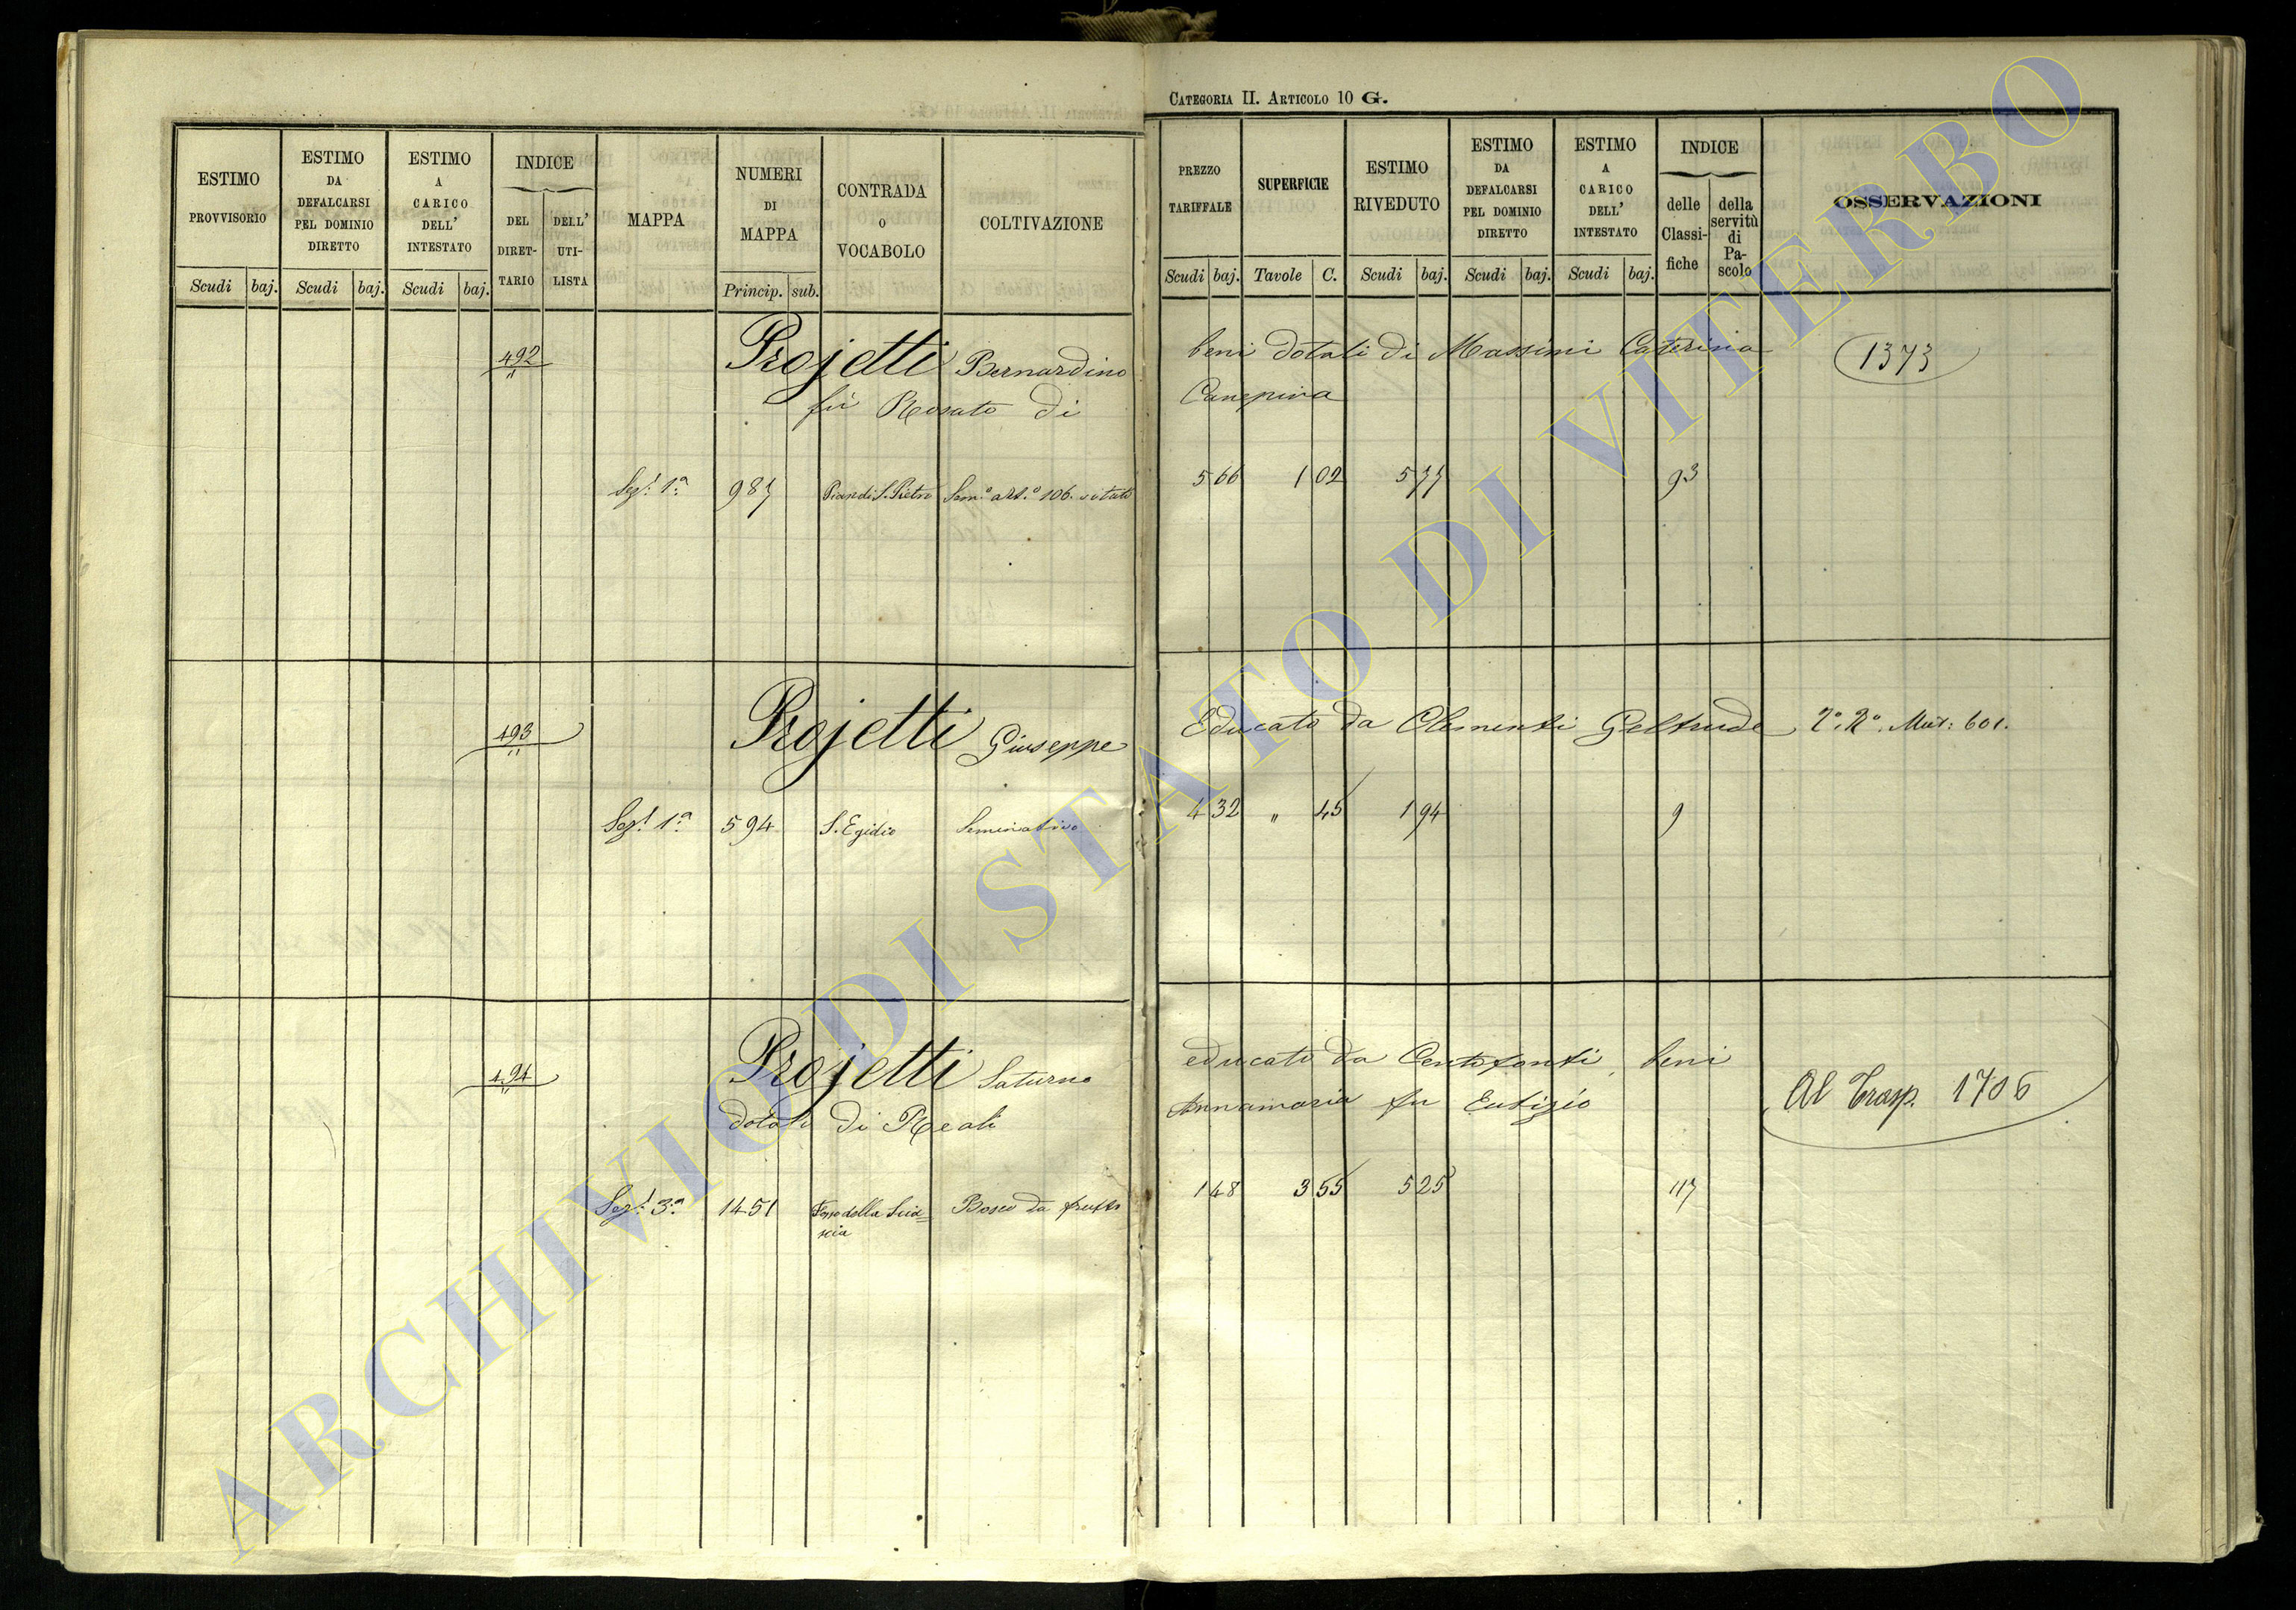 CATEGORIA II. ARTICOLO 10 G.
ESTIMO PROVVISORIO
Scudi baj.
ESTIMO DA DEFALCARSI PEL DOMINIO DIRETTO
Scudi baj.
ESTIMO A CARICO DELL' INTESTATO
Scudi baj.
INDICE
DEL DIRET-TARIO
DELL' UTI-LISTA
MAPPA
NUMERI DI MAPPA
Princip. sub.
CONTRADA o VOCABOLO
COLTIVAZIONE
PREZZO TARIFFALE
Scudi baj.
SUPERFICIE
Tavole C.
ESTIMO RIVEDUTO
Scudi baj.
ESTIMO DA DEFALCARSI PEL DOMINIO DIRETTO
Scudi baj.
ESTIMO A CARICO DELL' INTESTATO
Scudi baj.
INDICE
delle Classi-fiche
della servitù di Pa-scolo
OSSERVAZIONI
492 Projetti Bernardino beni dotali di Massimi Caterina 1373
fù Rosato di Canepina
Sez.e 1a 987 Pian di S. Pietro Sem.o art.o 106. vitato 5 66 1 02 5 77 93
493 Projetti Giuseppe Educato da Clementi Geltrude 2o. Ro. Mut: 601.
Sez.e 1a 594 S. Egidio Seminativo 4 32 " 45 1 94 9
494 Projetti Saturno educato da Centofanti, beni Al Trasp. 1706
dotali di Reali Annamaria fu Eutizio
Sez.e 3a 1451 Fosso della Scia=
scia Bosco da frutto 1 48 3 55 5 25 117
ARCHIVIO DI STATO DI VITERBO